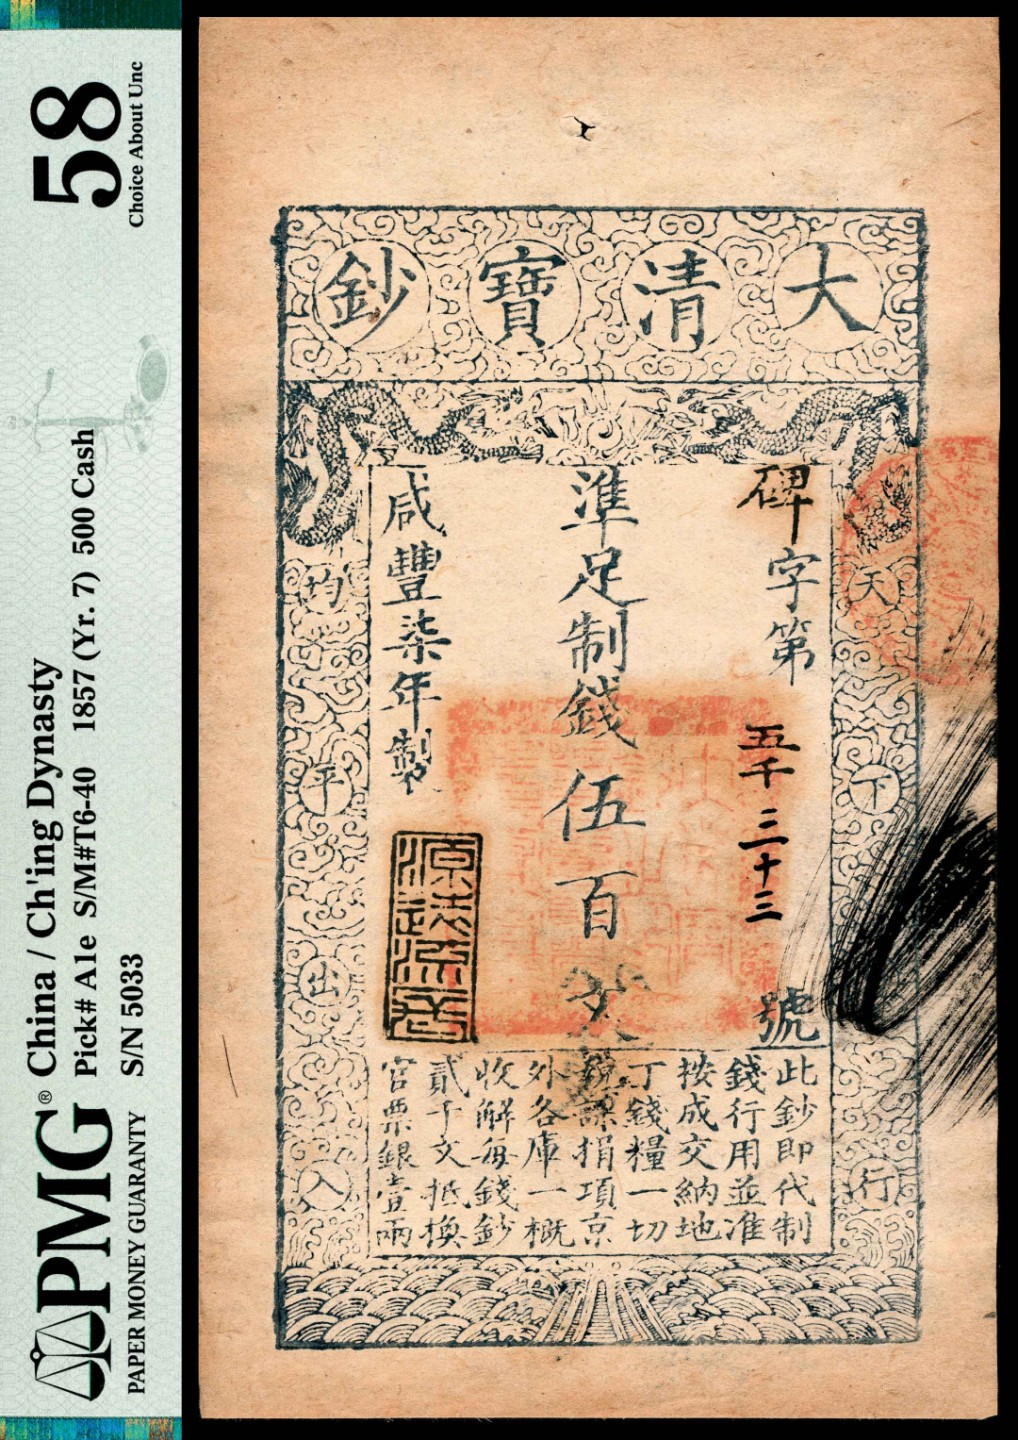 58
Choice About Unc
PMG®
PAPER MONEY GUARANTY
China / Ch'ing Dynasty
Pick# A1e S/M#T6-40 1857 (Yr. 7) 500 Cash
S/N 5033
大清寶鈔
天下行
均平出入
碑字第五千三十三號
準足制錢伍百文
咸豐柒年製
源遠流長
此鈔即代制
錢行用並准
按成交納地
丁錢糧一切
稅課捐項京
外各庫一概
收解每錢鈔
貳千文抵換
官票銀壹兩